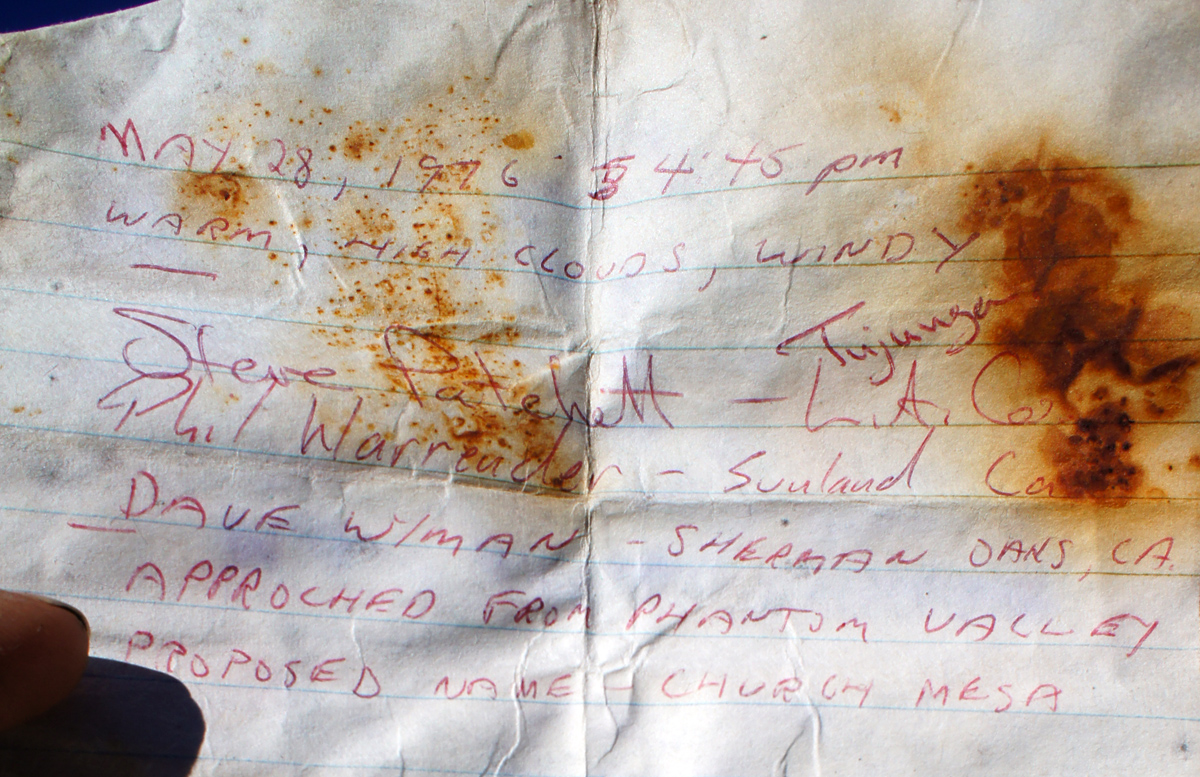 MAY 28, 1976 4:45 pm
WARM, HIGH CLOUDS, WINDY
Tujunga
Steve Patchett - L.A. Co.
Phil Warrender - Sunland Ca
DAVE WYMAN - SHERMAN OAKS, CA.
APPROCHED FROM PHANTOM VALLEY
PROPOSED NAME - CHURCH MESA